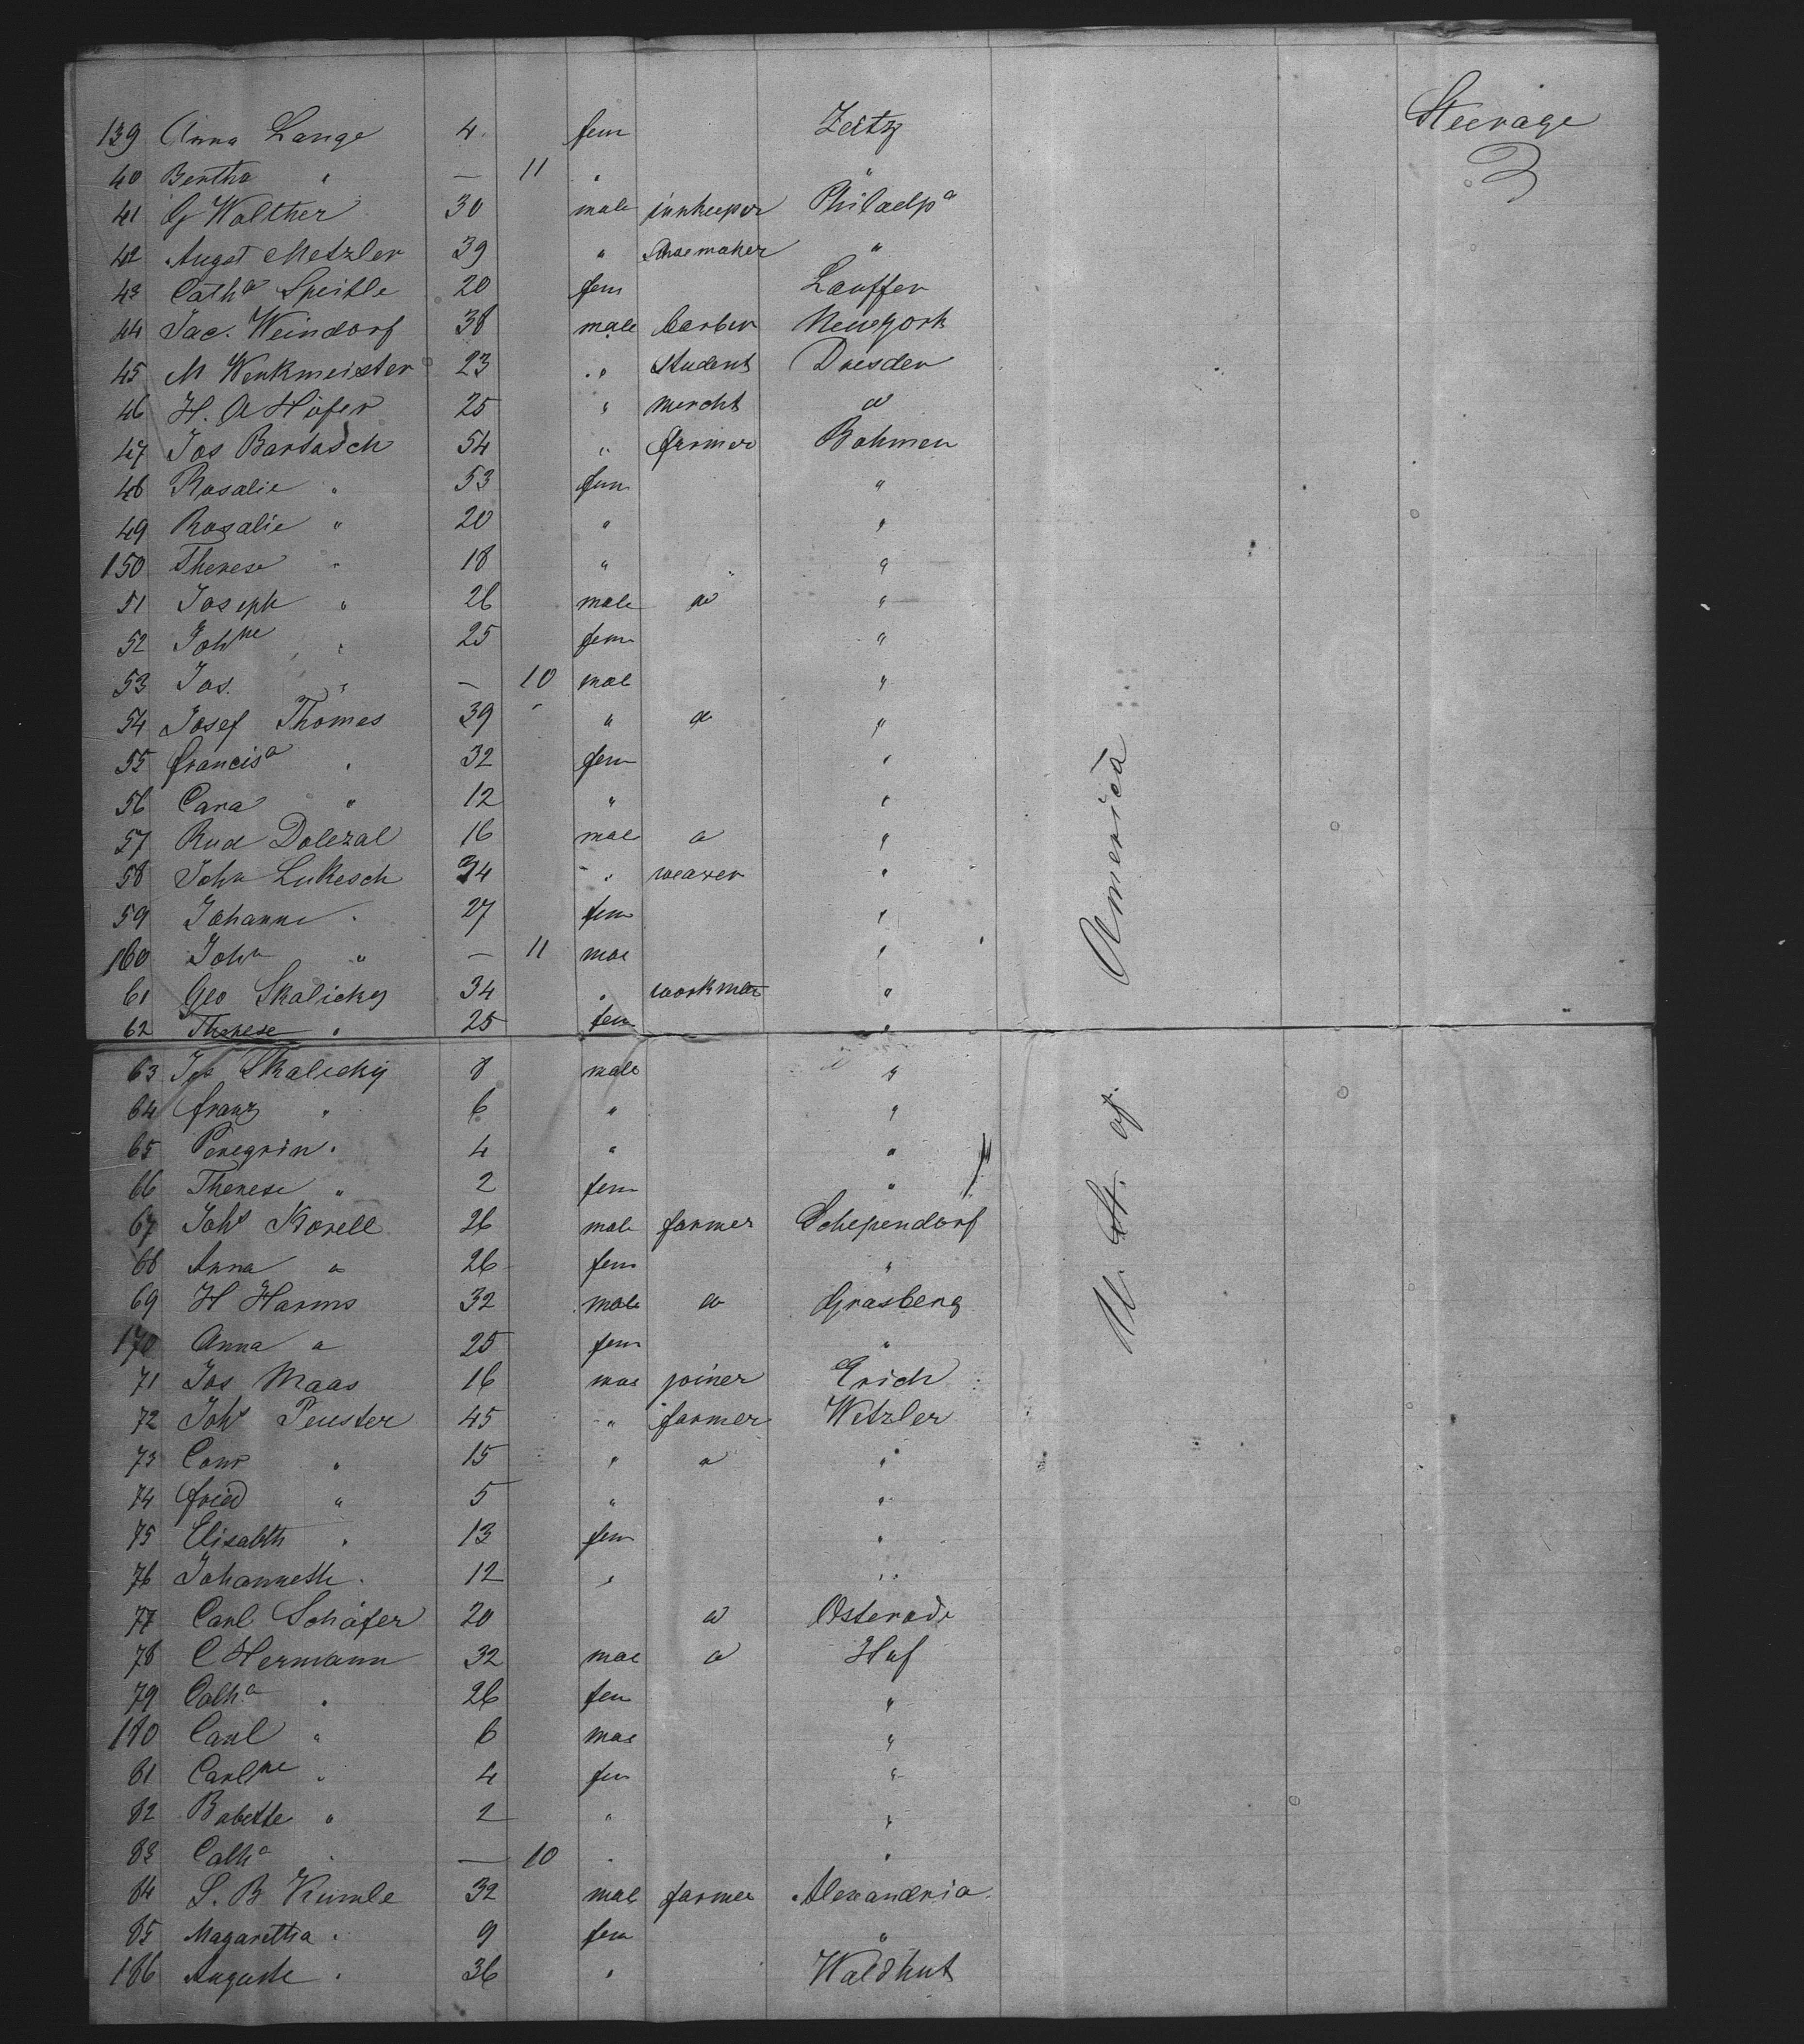 139 Anna Lange 4 fem Zeitz Steerage
40 Bertha " — 11 " "
41 G Walther 30 male innkeeper Philadpa
42 Augst Metzler 39 " Shoemaker "
43 Catha Speitle 20 fem Lauffen
44 Jac. Weindorf 38 male barber Newyork
45 M Werkmeister 23 " student Dresden
46 H. A Höfer 25 " mercht "
47 Jos Bartosch 54 " farmer Bohmen
48 Rosalie " 53 fem "
49 Rosalie " 20 " "
150 Therese " 18 " "
51 Joseph " 26 male " "
52 Johne " 25 fem "
53 Jos. " — 10 mal "
54 Josef Thomes 39 " " "
55 Francisa " 32 fem "
56 Cara " 12 " "
57 Rud Dolezal 16 mal " "
58 Joh Lukesch 34 " weaver "
59 Johanne " 27 fem "
160 Joh " — 11 mal "
61 Geo Skalicky 34 " workman "
62 Therese " 25 fem "
63 Jos Skalicky 8 male "
64 Franz " 6 " "
65 Peregrin " 4 " "
66 Therese " 2 fem "
67 Johs Korell 26 male farmer Schependorf
68 Anna " 26 fem "
69 H Harms 32 male " Grasberg
170 Anna " 25 fem "
71 Jos Maas 16 mal joiner Erich
72 Johs Peuster 45 " farmer Wetzler
73 Conr " 15 " " "
74 Fried " 5 " "
75 Elisabth " 13 fem "
76 Johannette " 12 " "
77 Carl Schäfer 20 " Osterode
78 C Hermann 32 mal " Huf
79 Catha " 26 fem "
180 Carl " 6 mal "
81 Carlne " 4 fem "
82 Babette " 2 " "
83 Catha " — 10 " "
84 S. B Kumle 32 mal farmer Alexandria
85 Magaretha " 9 fem "
186 Auguste " 36 " Waldhut
U. St. of America